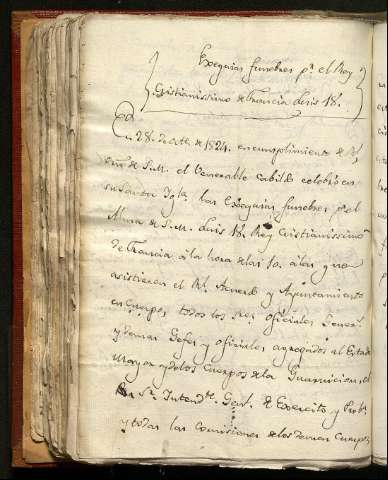 Exequias funebres pr. el Rey
Cristianissimo de Francia Luis 18.
En 28. de de 1824. en cumplimiento de Rl.
orn. de S.M. el Venerable Cabildo celebró en
su Santa Igla. las Exequias funebres pr. el
Alma de S.M. Luis 18. Rey Cristianissimo
de Francia á la hora de las 10. á las y
asistieron el Rl. Acuerdo y Ayuntamiento
en cuerpo, todos los Sres. oficiales Gener.
y demas Gefes y oficiales agregados al Estado
mayor y de los cuerpos de la Guarnicion, el
Sr. Intendte. Genl. de Exercito y Prov.
y todas las Comisiones de los demas Cuerpos